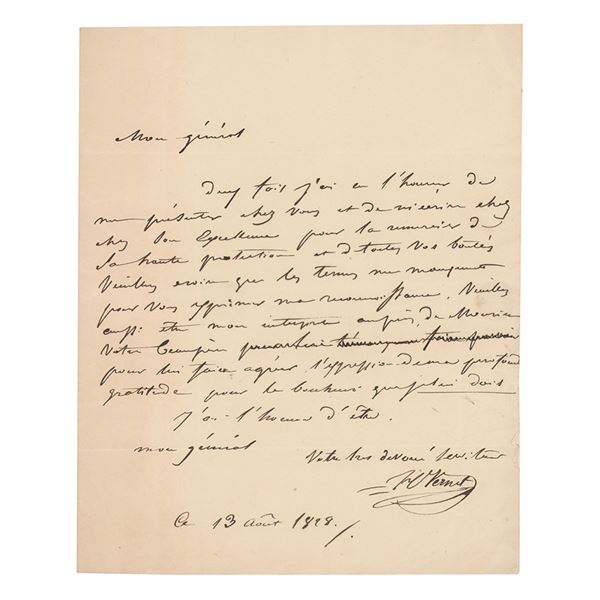 Mon général
Deux fois j'ai eu l'honneur de
me présenter chez vous et de m'écrire chez
chez Son Excellence pour la remercier de
sa haute protection et de toutes vos bontés
Veuillez croire que les termes me manquent
pour vous exprimer ma reconnaissance. Veuillez
aussi être mon interprète auprès de Monsieur
votre
pour lui faire agréer l'expression de ma profonde
gratitude pour le bonheur que je lui dois
J'ai l'honneur d'être
mon général
Votre très dévoué serviteur
H Vernet
Ce 13 Août 1828.